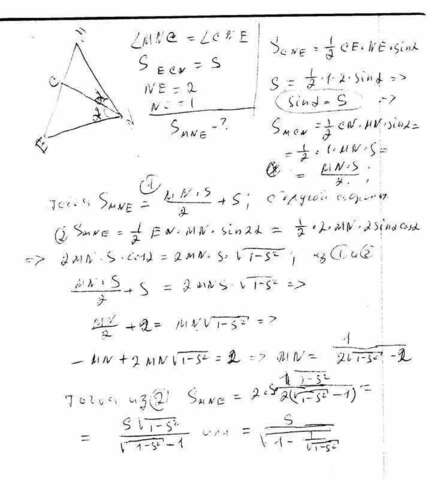 M
C
N
E
α
α
∠MNC = ∠CNE
S ECN = S
NE = 2
N = 1
S MNE - ?
S CNE = 1/2 CE · NE · sinα
S = 1/2 · 1 · 2 · sinα =>
sinα = S =>
S MCN = 1/2 CN · MN · sinα =
= 1/2 · 1 · MN · S =
= MN·S/2 ;
① S MNE = MN·S/2 + S; с другой стороны
② S MNE = 1/2 EN · MN · sin2α = 1/2 · 2 · MN · 2sinαcosα
=> 2MN · S · cosα = 2MN · S · √(1-S²); из ① и ②
MN·S/2 + S = 2MNS · √(1-S²) =>
MN/2 + 2 = MN√(1-S²) =>
-MN + 2MN√(1-S²) = 2 => MN = 1/(2√(1-S²) - 2)
Тогда из ② S MNE = 2·S √(1-S²)/(2(√(1-S²) - 1)) =
= S√(1-S²)/(√(1-S²) - 1) или = S/(√1 - 1/√(1-S²))